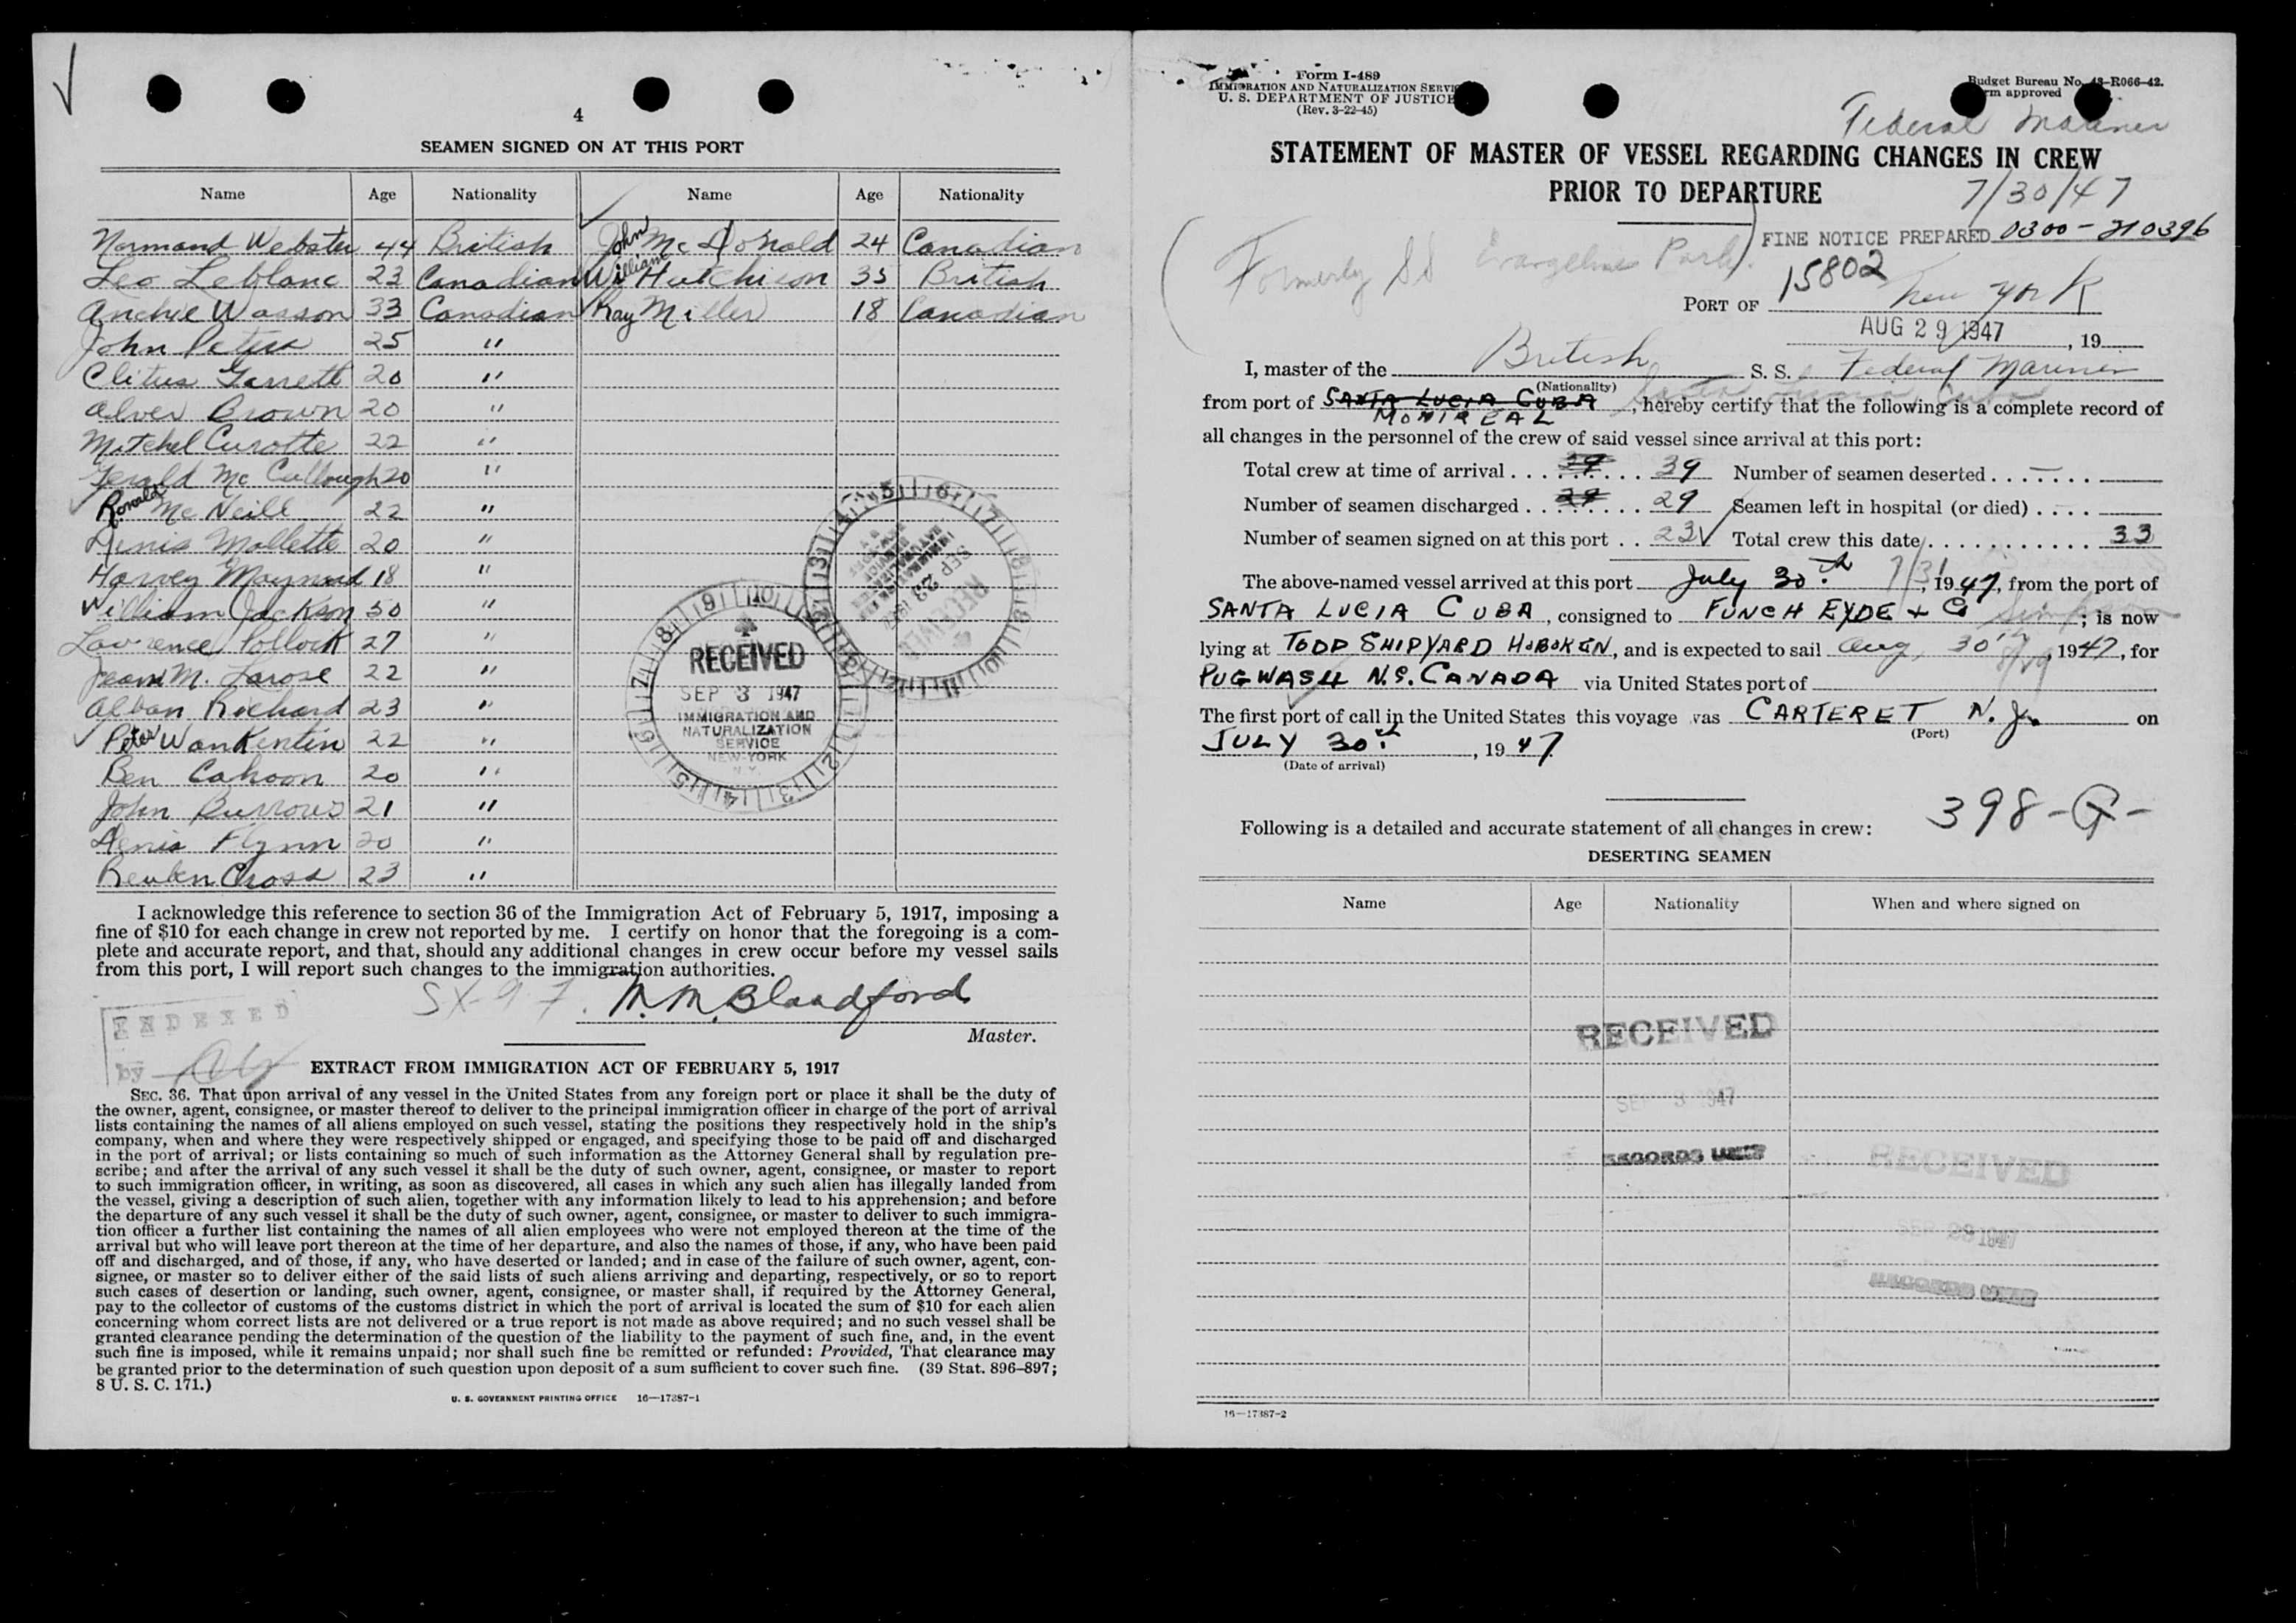 4
SEAMEN SIGNED ON AT THIS PORT
Name Age Nationality Name Age Nationality
Normand Webster 44 British John McDonald 24 Canadian
Leo Leblanc 23 Canadian William Hutchison 35 British
Archie Wasson 33 Canadian Ray Miller 18 Canadian
John Peters 25 "
Clitus Garrett 20 "
Alver Brown 20 "
Mitchel Curotte 22 "
Gerald McCullough 20 "
Ronald McNeill 22 "
Denis Mollette 20 "
Harvey Maynard 18 "
William Jackson 50 "
Lawrence Pollock 27 "
Jean M. Larose 22 "
Alban Richard 23 "
Peter WanKentin 22 "
Ben Cahoon 20 "
John Burrows 21 "
Denis Flynn 20 "
Reuben Cross 23 "
RECEIVED
SEP 3 1947
IMMIGRATION AND
NATURALIZATION
SERVICE
NEW YORK
N.Y.
I acknowledge this reference to section 36 of the Immigration Act of February 5, 1917, imposing a
fine of $10 for each change in crew not reported by me. I certify on honor that the foregoing is a com-
plete and accurate report, and that, should any additional changes in crew occur before my vessel sails
from this port, I will report such changes to the immigration authorities.
SX-97. M.M. Blandford
Master.
INDEXED
by
EXTRACT FROM IMMIGRATION ACT OF FEBRUARY 5, 1917
SEC. 36. That upon arrival of any vessel in the United States from any foreign port or place it shall be the duty of
the owner, agent, consignee, or master thereof to deliver to the principal immigration officer in charge of the port of arrival
lists containing the names of all aliens employed on such vessel, stating the positions they respectively hold in the ship's
company, when and where they were respectively shipped or engaged, and specifying those to be paid off and discharged
in the port of arrival; or lists containing so much of such information as the Attorney General shall by regulation pre-
scribe; and after the arrival of any such vessel it shall be the duty of such owner, agent, consignee, or master to report
to such immigration officer, in writing, as soon as discovered, all cases in which any such alien has illegally landed from
the vessel, giving a description of such alien, together with any information likely to lead to his apprehension; and before
the departure of any such vessel it shall be the duty of such owner, agent, consignee, or master to deliver to such immigra-
tion officer a further list containing the names of all alien employees who were not employed thereon at the time of the
arrival but who will leave port thereon at the time of her departure, and also the names of those, if any, who have been paid
off and discharged, and of those, if any, who have deserted or landed; and in case of the failure of such owner, agent, con-
signee, or master so to deliver either of the said lists of such aliens arriving and departing, respectively, or so to report
such cases of desertion or landing, such owner, agent, consignee, or master shall, if required by the Attorney General,
pay to the collector of customs of the customs district in which the port of arrival is located the sum of $10 for each alien
concerning whom correct lists are not delivered or a true report is not made as above required; and no such vessel shall be
granted clearance pending the determination of the question of the liability to the payment of such fine, and, in the event
such fine is imposed, while it remains unpaid; nor shall such fine be remitted or refunded: Provided, That clearance may
be granted prior to the determination of such question upon deposit of a sum sufficient to cover such fine. (39 Stat. 896–897;
8 U. S. C. 171.)
U. S. GOVERNMENT PRINTING OFFICE 16—17387-1
Form I-489
IMMIGRATION AND NATURALIZATION SERVI
U. S. DEPARTMENT OF JUSTICE
(Rev. 3-22-45)
Budget Bureau No. 43-R066-42.
rm approved
Federal Mariner
STATEMENT OF MASTER OF VESSEL REGARDING CHANGES IN CREW
PRIOR TO DEPARTURE
7/30/47
FINE NOTICE PREPARED 0300-210396
(Formerly SS Evangeline Park)
15802
PORT OF New York
AUG 29 1947, 19
I, master of the British S. S. Federal Mariner
(Nationality)
from port of SANTA LUCIA CUBA, hereby certify that the following is a complete record of
MONTREAL
all changes in the personnel of the crew of said vessel since arrival at this port:
Total crew at time of arrival 39 39 Number of seamen deserted —
Number of seamen discharged 29 29 Seamen left in hospital (or died)
Number of seamen signed on at this port 23 Total crew this date 33
The above-named vessel arrived at this port July 30th 7/31, 1947, from the port of
SANTA LUCIA CUBA, consigned to FUNCH EYDE + Co; is now
lying at TODD SHIPYARD HOBOKEN, and is expected to sail Aug, 30th 8/29, 1947, for
PUGWASH N.S. CANADA via United States port of
The first port of call in the United States this voyage was CARTERET N.J. on
(Port)
JULY 30th, 1947
(Date of arrival)
398-G-
Following is a detailed and accurate statement of all changes in crew:
DESERTING SEAMEN
Name Age Nationality When and where signed on
RECEIVED
SEP 3 1947
RECORDS UNIT
RECEIVED
SEP 23 1947
RECORDS UNIT
16—17387-2